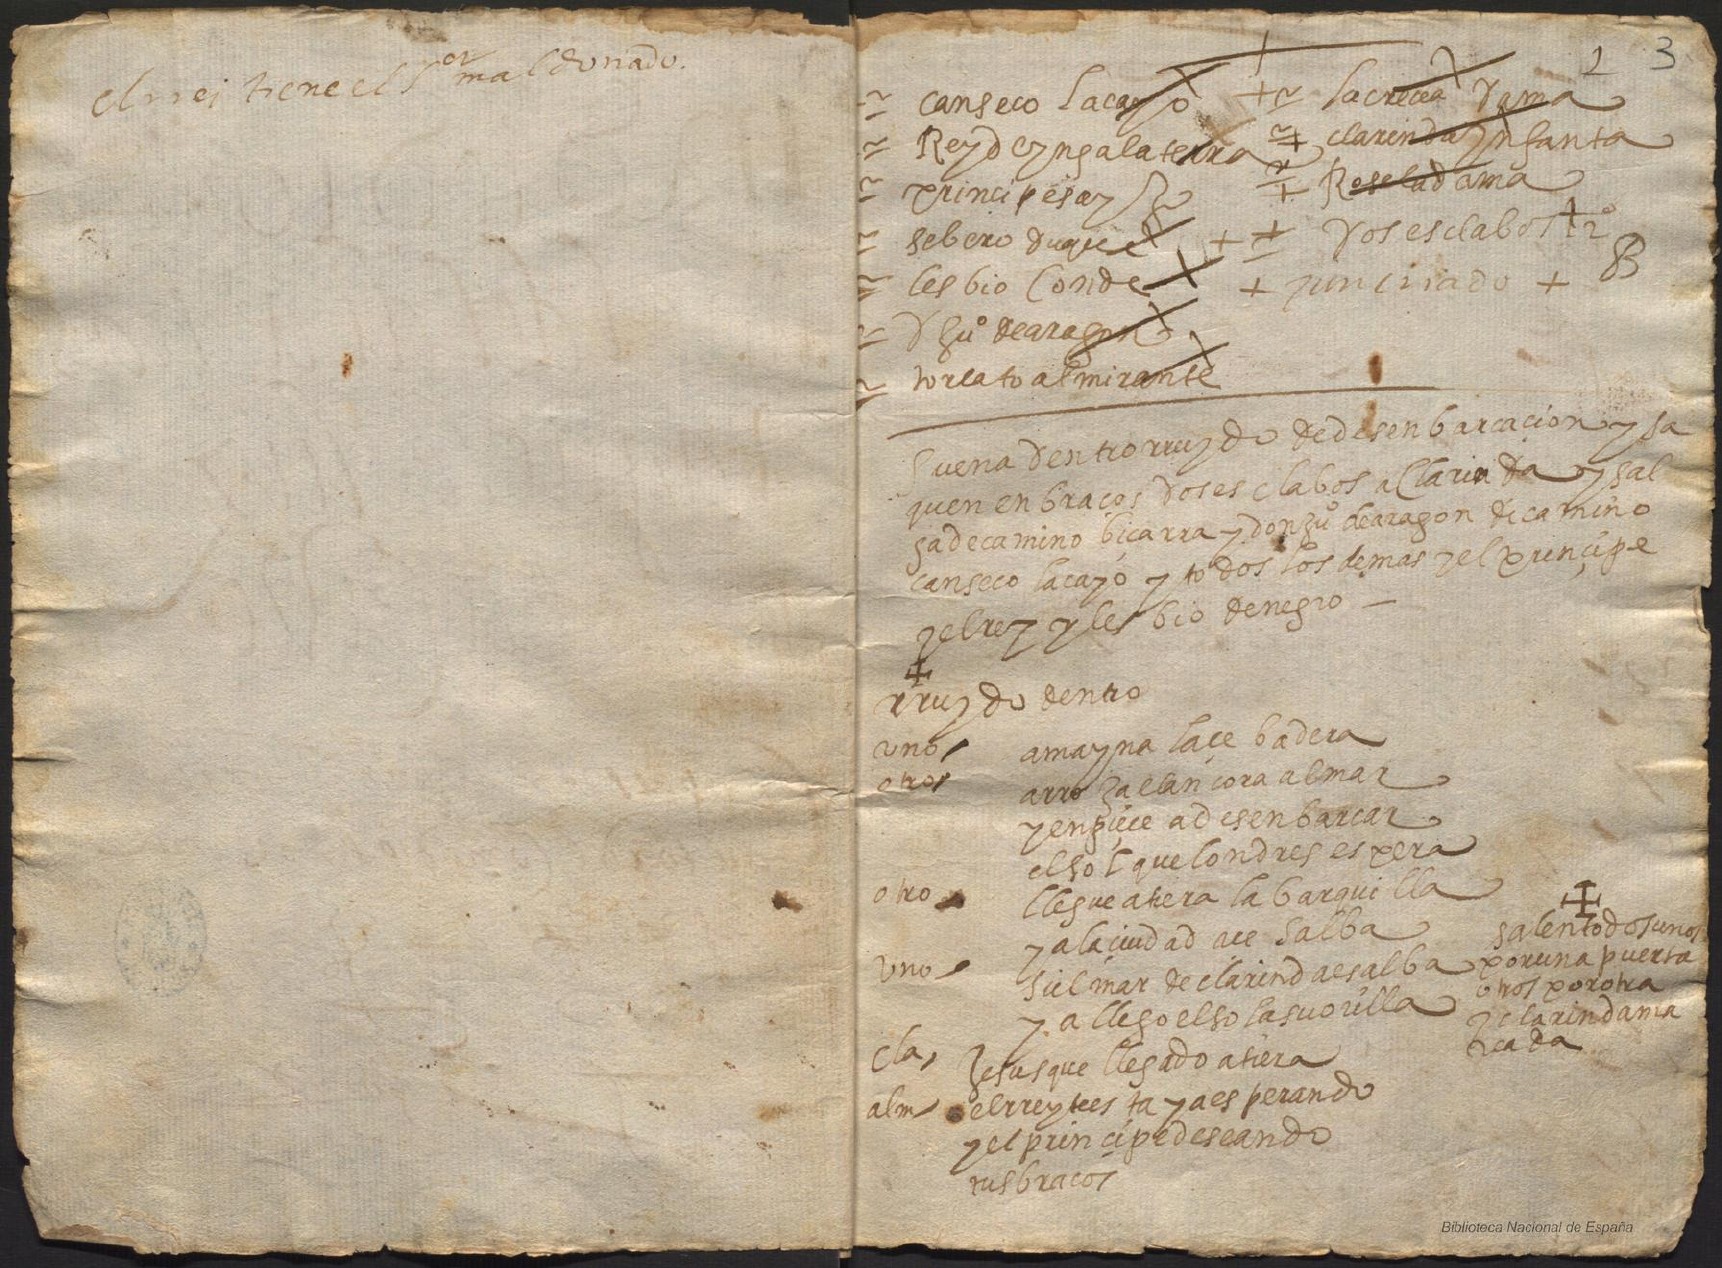 el rrei tiene el Sor maldonado.
1 3
canseco lacayo
Rey de yngalaterra
principe
sebero duque
lesbio Conde
D Juº de aragon
torcato almirante
lacrecea dama
clarinda ynfanta
Rosela dama
dos esclabos 2º
y un criado
B
Suena dentro rruydo de desenbarcacion y sa
quen en braços dos esclabos a Clarinda y sal
ga de camino biçarra y don Juº de aragon de camino
canseco lacayo y todos los demas y el principe
y el rey y lesbio de negro
rruydo dentro
uno amayna la cebadera
otro arroja el ancora al mar
y enpiece a desenbarcar
el sol que londres espera
otro llegue a tiera la barquilla
y a la ciudad ace salba
uno si el mar de clarinda es alba
ya llego el sol a su orilla
salen todos unos
por una puerta
otros por otra
y clarinda ma
reada
cla, Jesus que llegado a tiera
alm el rrey te esta ya esperando
y el principe deseando
tus braços
Biblioteca Nacional de España